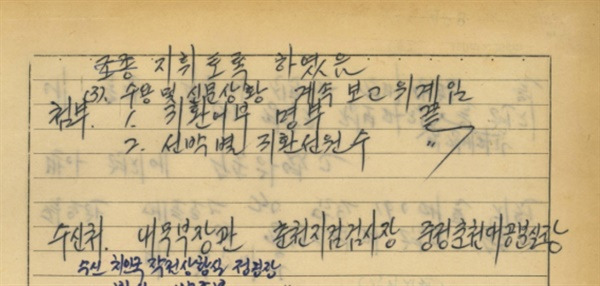 조종 지휘토록 하였음
(3). 수용 및 신문상황 계속 보고 위계임
첨부. 1. 귀환어부 명부 끝
2. 선박별 귀환선원수 〃
수신처. 내무부장관 춘천지검검사장 중정춘천대공분실장
수신 치안국 작전상황실 정